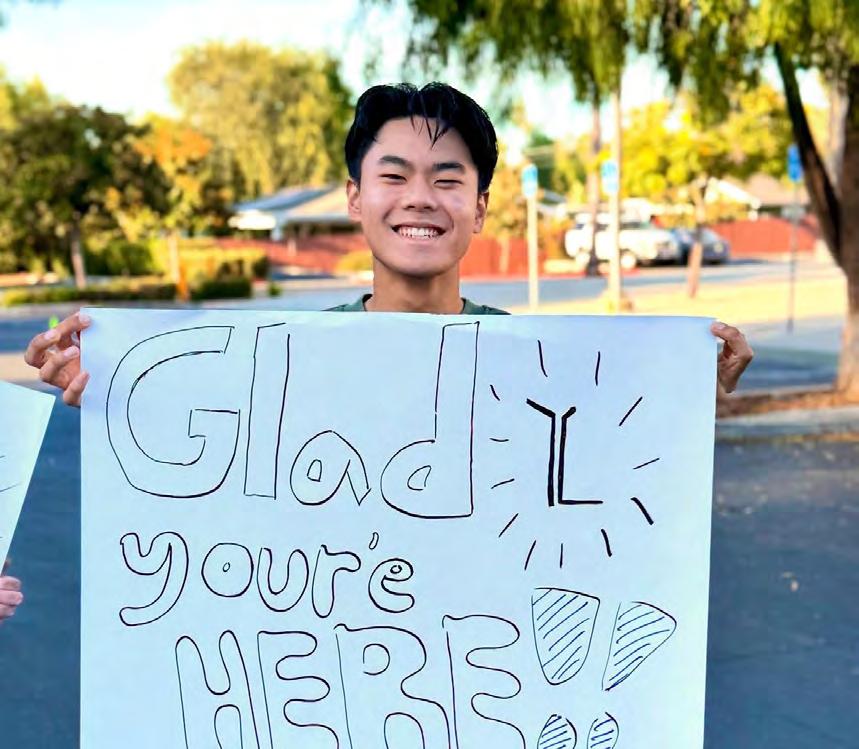 Glad YL
your'e
HERE!!